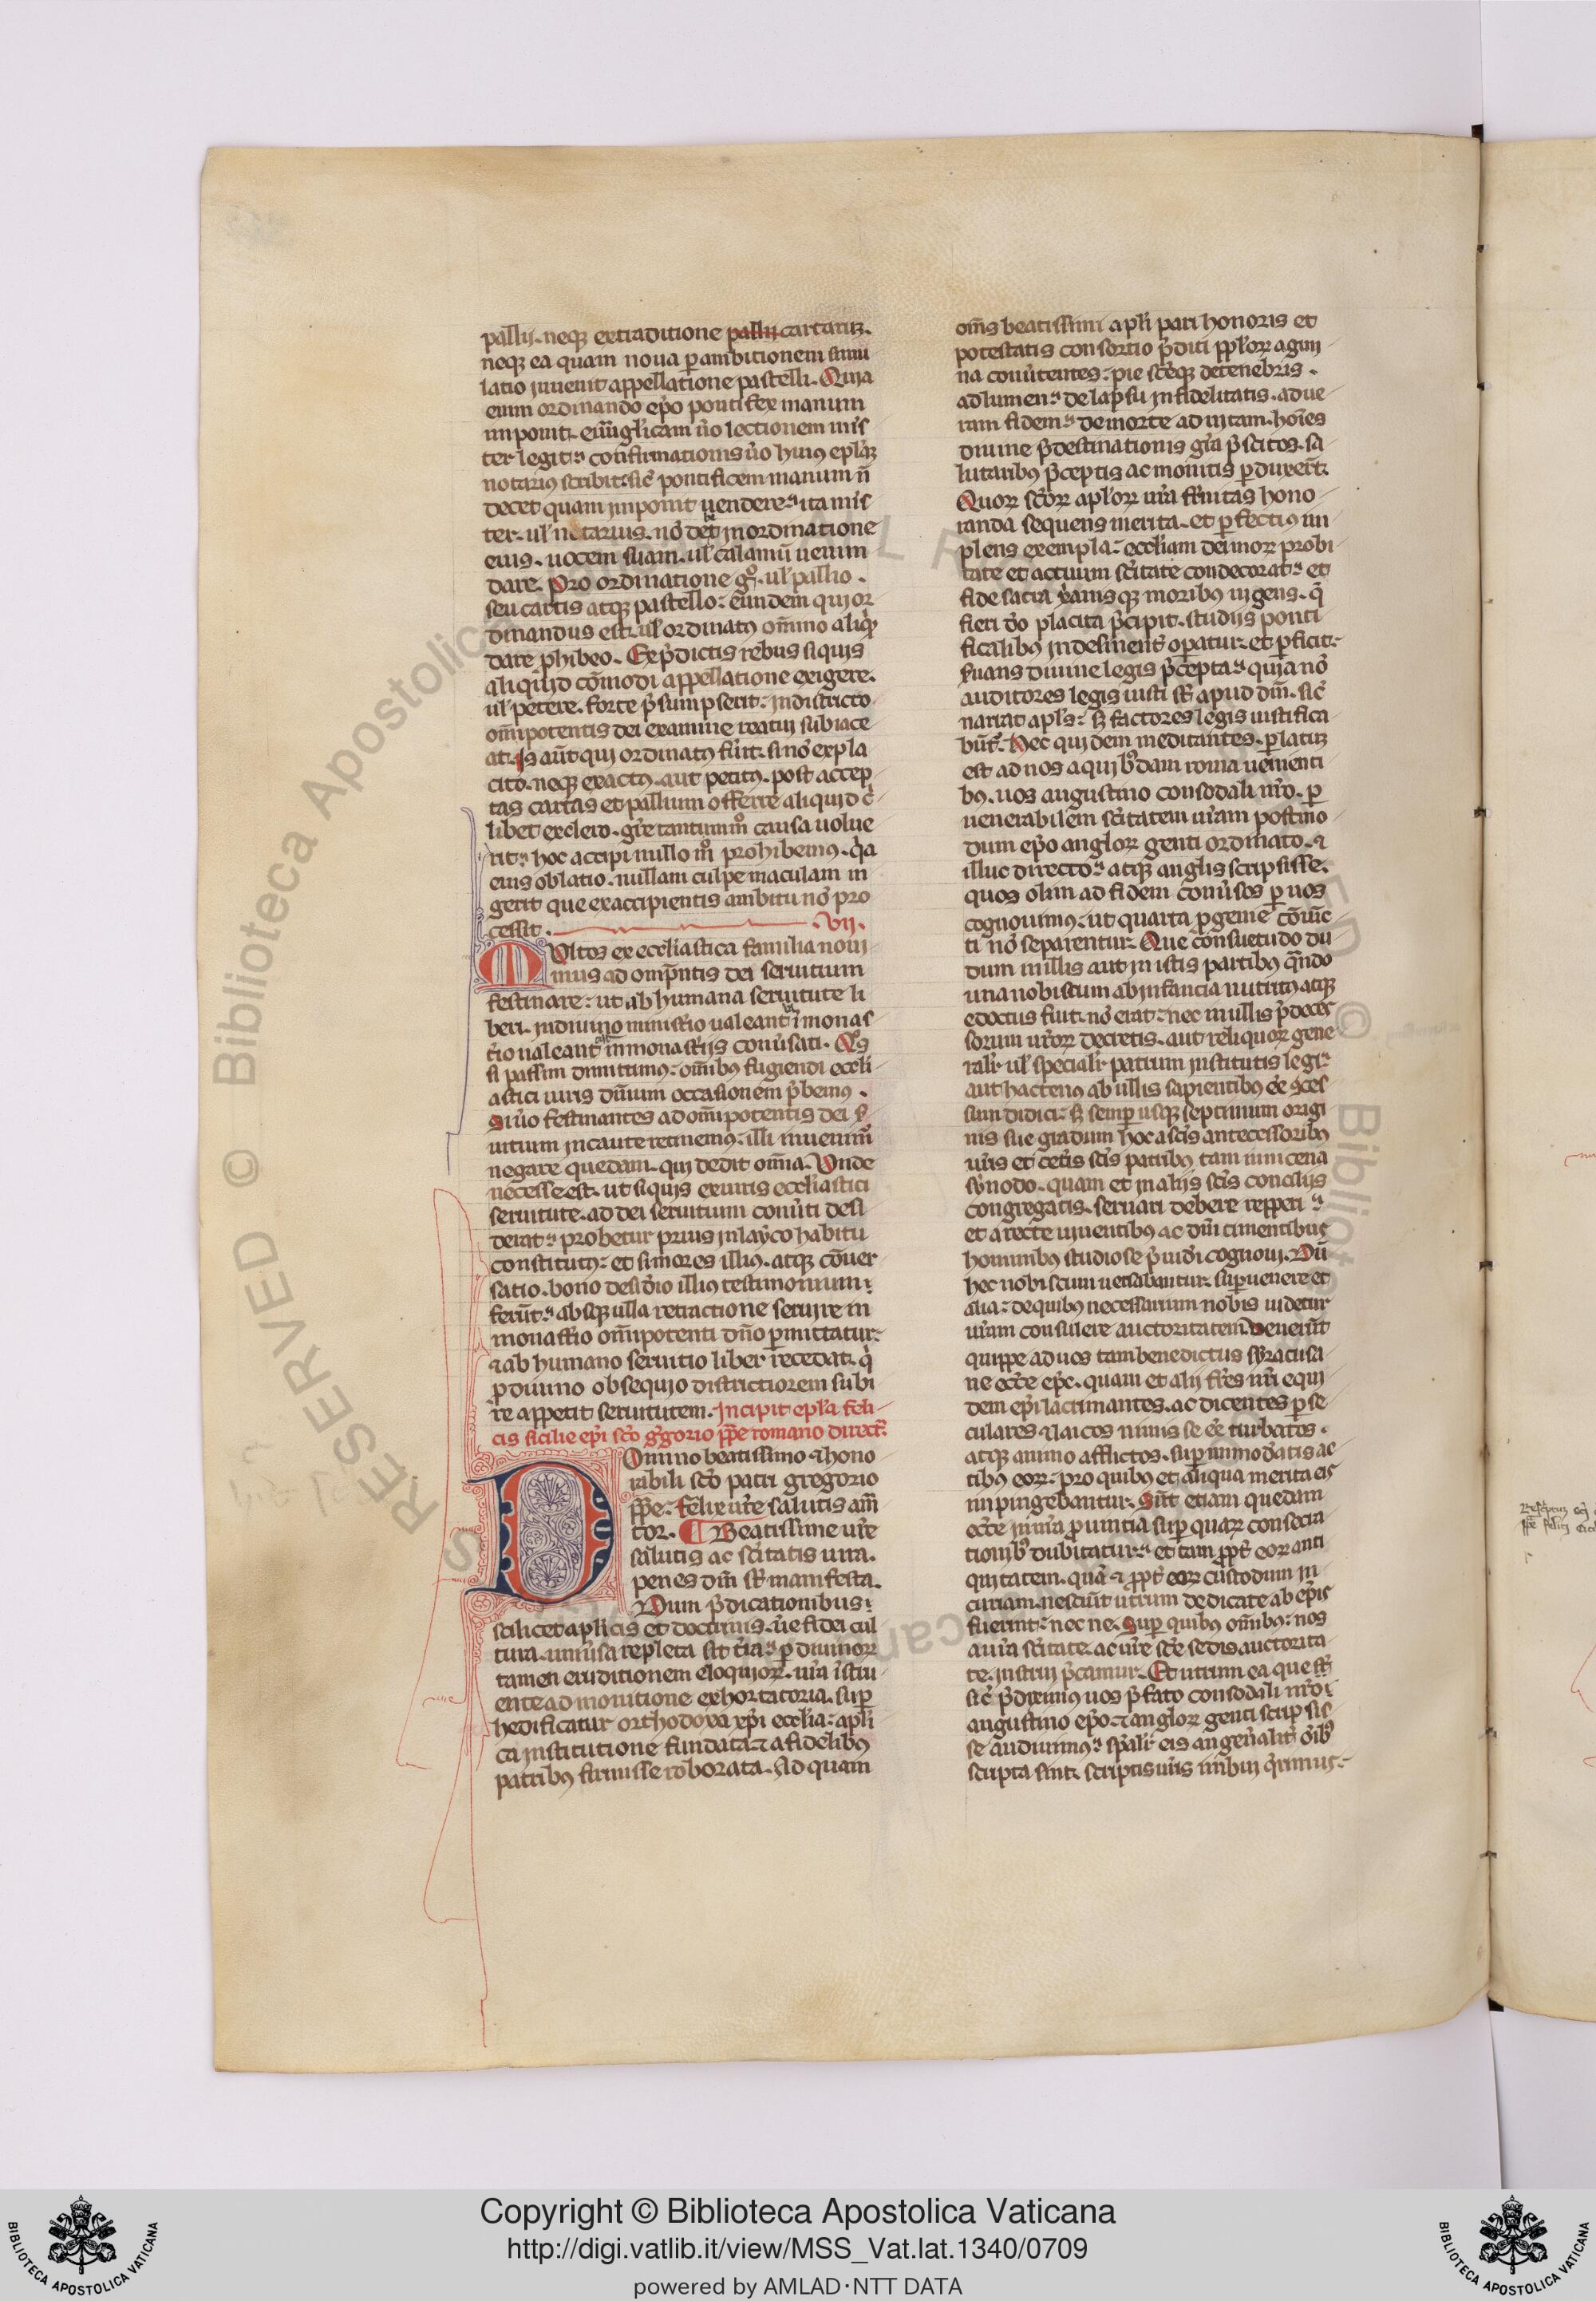 pallij. neqꝫ ex traditione pallij cartarũ.
neqꝫ ea quam noua ꝑ ambitionem simu
latio inuenit appellatione pastelli. Quia
enim ordinando ep̃o pontifex manum
imponit. euãg̃licam ũo lectionem mis
ter legit. confirmationis ũo huiꝰ ep̃lȩ
notariꝰ scribit. sic̃ pontificem manum ñ
decet quam imponit uendere. ita mis
ter. ul̃ notarius. nõ det in ordinatione
eius. uocem suam. ul̃ calamũ uenun
dare. Pro ordinatione gͦ. ul̃ pallio.
seu cartis atqꝫ pastello. eundem qui or
dinandus est. ul̃ ordinatꝰ om̃ino aliqͥd
dare ꝓhibeo. Ex p̃dictis rebus siquis
aliquid cõmodi appellatione exigere.
ul̃ petere. forte p̃sumpserit. in districto
om̃ipotentis dei examine reatui subiace
at. Is aũt qui ordinatꝰ fũit. si nõ ex pla
cito. neqꝫ exactꝰ. aut petitꝰ. post accep
tas cartas et pallium offerre aliquid c̃
libet ex clero. gr̃e tantummͦ causa uolue
rit. hoc accipi nullo mͦ prohibemꝰ. qͥa
eius oblatio. nullam culpe maculam in
gerit que ex accipientis ambitu nõ pro
cessit. .vij.
Multos ex eccl̃iastica familia noui
mus ad om̃p̃ntis dei seruitium
festinare. ut ab humana seruitute li
beri. in diuino minist̃io ualeant ĩ monas
t̃io ualeant in monast̃ijs conũsari. Qͦs
si passim dimittimꝰ. om̃ibꝰ fugiendi eccl̃i
astici iuris dñium occasionem p̃bemꝰ.
Si ũo festinantes ad om̃ipotentis dei s̃
uitium incaute retinemꝰ. illi inuenim̃
negare quedam. qui dedit om̃ia. Unde
necesse est. ut siquis ex iuris eccl̃iastici
seruitute. ad dei seruitium conũti desi
derat. probetur prius in layco habitu
constitutꝰ. et si mores illiꝰ. atqꝫ conuer
satio. bono desid̃io illiꝰ testimonium.
ferũt. absqꝫ ulla retractione seruire in
monast̃io om̃ipotenti dño ꝑmittatur.
⁊ ab humano seruitio liber recedat. qͥ
ꝓ diuino obsequio districtiorem subi
re appetit seruitutem. Incipit ep̃la feli
cis sicilie ep̃i sc̃o g̃gorio pp̃e romano direct̃.
Domino beatissimo ⁊ hono
rabili sc̃o patri gregorio
pp̃e. felix ur̃e salutis am̃
tor. ¶ Beatissime ur̃e
salutis ac sc̃itatis iura.
penes dm̃ st̃ manifesta.
Dum p̃dicationibus.
scilicet aplicis et doctrinis. ũe fidei cul
tura. uniũsa repleta sit t̃ra. ꝓ diuinoꝝ
tamen eruditionem eloquioꝝ. ur̃a ĩstru
ente admonitione exhortatoria. suꝑ
hedificatur orthodoxa xp̃i eccl̃ia. apl̃i
ca institutione fundata. ⁊ a fidelibꝰ
patribꝰ firmisse roborata. Ad quam
om̃s beatissimi apl̃i pari honoris et
potestatis consortio p̃diti pp̃loꝝ agmi
na conũtentes. pie sc̃eqꝫ de tenebris.
ad lumen. de lapsu infidelitatis. ad ue
ram fidem. de morte ad uitam. hoĩes
diuine p̃destinationis gr̃a p̃scitos. sa
lutaribꝰ p̃ceptis ac monitis ꝑduxer̃t.
Quoꝝ sc̃oꝝ apl̃oꝝ ur̃a fr̃nitas hono
randa sequens merita. et ꝑfectiꝰ im
plens exempla. eccl̃iam dei moꝝ probi
tate et actuum sc̃itate condecorat. et
fide sacra xp̃ianisqꝫ moribꝰ uigens. qͥ
fieri d̃o placita p̃cipit. studijs ponti
ficalibꝰ indesinent̃ oꝑatur. et ꝑficit.
s̃uans diuine legis p̃cepta. quia nõ
auditores legis iusti st̃ apud dm̃. sic̃
narrat apl̃s. s̃ factores legis iustifica
bũt̃. Nec quidem meditantes. ꝑlatũ
est ad nos a quibꝰdam roma uenienti
bꝰ. uos augustino consodali nr̃o. ꝑ
uenerabilem sc̃itatem ur̃am postmo
dum ep̃o angloꝝ genti ordinato. ⁊
illuc directo. atqꝫ anglis scripsisse.
quos olim ad fidem conũsos ꝑ uos
cognouimꝰ. ut quarta ꝓgenie cõiũc
ti nõ separentur. Que consuetudo du
dum in illis aut in istis partibꝰ qñdo
una nobiscum ab infancia nutritꝰ atqꝫ
edoctus fuit. nõ erat. nec in ullis p̃deces
sorum ur̃oꝝ decretis. aut reliquoꝝ gene
ralit̃ ul̃ specialit̃ patrum institutis legi.
aut hactenꝰ ab ullis sapientibꝰ ẽe ꝯces
sum didici. s̃ semꝑ usqꝫ septimum origi
nis sue gradum hoc a sc̃is antecessoribꝰ
ur̃is et cet̃is sc̃is patribꝰ tam in nicena
synodo. quam et in alijs sc̃is concilijs
congregatis. seruari debere repperi.
et a recte uiuentibꝰ ac dm̃ timentibus
hominibꝰ studiose p̃uid̃i cognoui. Dũ
hec nobiscum uersabantur. suꝑuenere et
alia. de quibꝰ necessarium nobis uidetur
ur̃am consulere auctoritatem. Venerũt
quippe ad uos tam benedictus syracusa
ne ecc̃e ep̃c. quam et alij fr̃es nr̃i equi
dem ep̃i lacrimantes. ac dicentes ꝑ se
culares ⁊ laicos nimis se ẽe turbatos.
atqꝫ animo afflictos. suꝑ immod̃atis ac
tibꝰ eoꝝ. pro quibꝰ et aliqua merita eis
impingebantur. Sũt etiam quedam
ecc̃e in nr̃a ꝓuintia suꝑ quaꝝ consecra
tionibꝰ dubitatur. et tam ꝓpt̃ eoꝝ anti
quitatem. quã ⁊ ꝓpt̃ eoꝝ custodum in
curiam. nesciũt utrum dedicate ab ep̃is
fuerint. nec ne. Suꝑ quibꝰ om̃ibꝰ. nos
a ur̃a sc̃itate. ac ur̃e sc̃e sedis auctorita
te. instrui p̃camur. Et utrum ea que st̃
sic̃ p̃diximꝰ uos p̃fato consodali nr̃o
augustino ep̃o. ⁊ angloꝝ genti scrip sis
se audiuimꝰ. sp̃alit̃ eis an gen̄alit̃ oĩbꝰ
scripta sint. scriptis ur̃is
Copyright © Biblioteca Apostolica Vaticana
http://digi.vatlib.it/view/MSS_Vat.lat.1340/0709
powered by AMLAD·NTT DATA
BIBLIOTECA APOSTOLICA VATICANA
BIBLIOTECA APOSTOLICA VATICANA